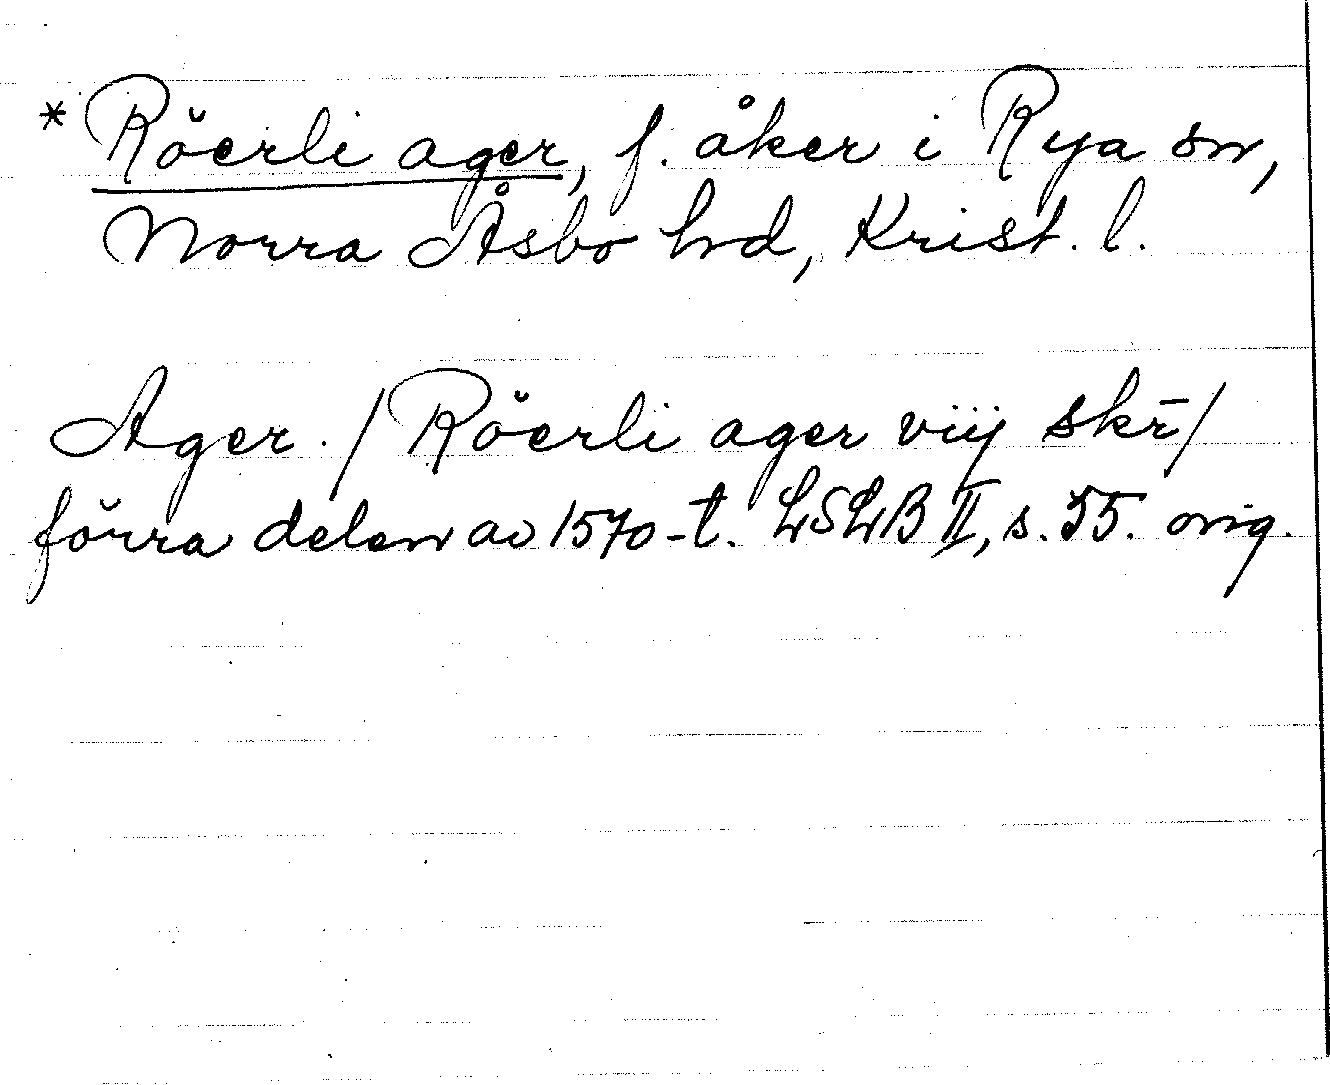 * Röerli ager, f. åker i Rya sn,
Norra Åsbo hd, Krist. l.
Ager. / Röerli ager viij skr̄ /
förra delen av 1570-t. LSLB II, s. 55. orig.